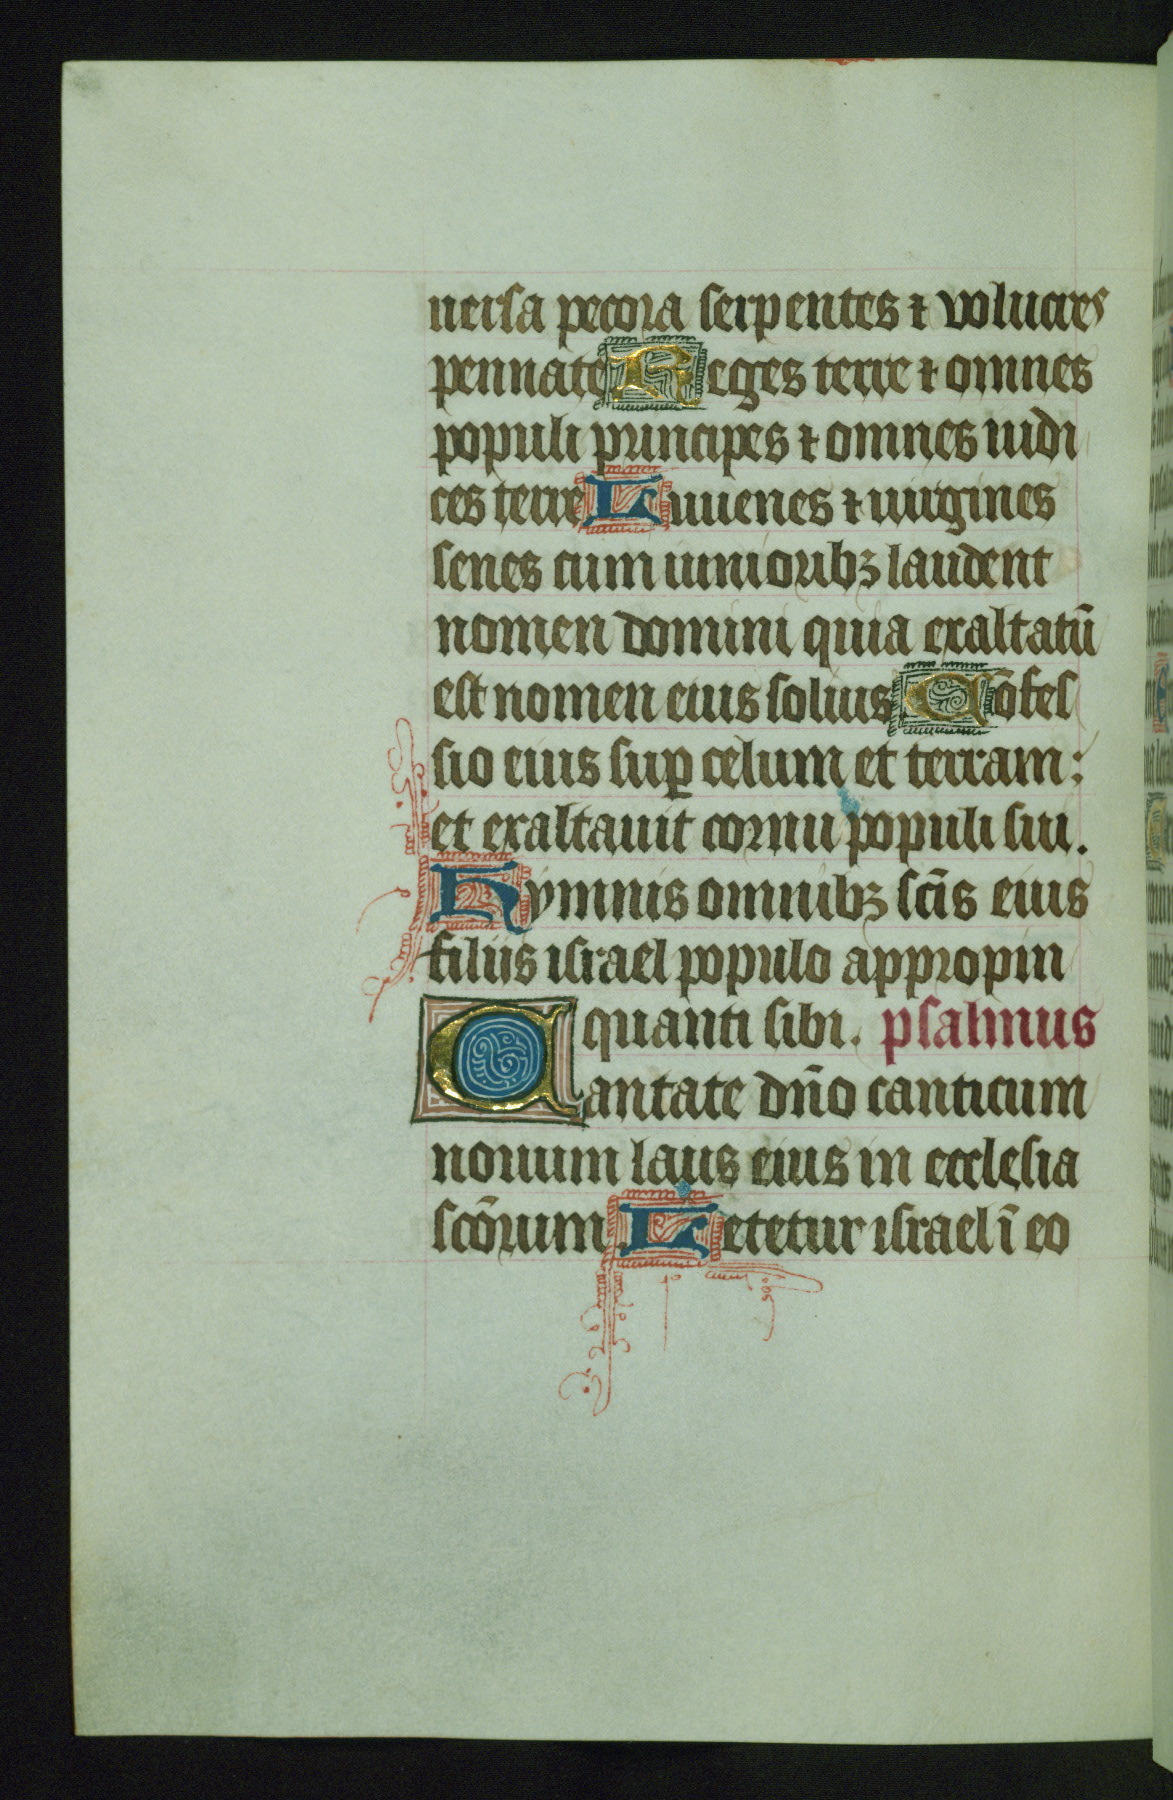 uersa pecora serpentes ⁊ volucres
pennate Reges terre ⁊ omnes
populi principes ⁊ omnes iudi
ces terre Iuuenes ⁊ uirgines
senes cum iunioribꝫ laudent
nomen domini quia exaltatū
est nomen eius solius Cōfes
sio eius suꝑ celum et terram:
et exaltauit cornu populi sui.
Hymnis omnibꝫ scīs eius
filiis israel populo appropin
quanti sibi. psalmus
Cantate dn̄o canticum
nouum laus eius in ecclesia
scōrum Letetur israel ī eo